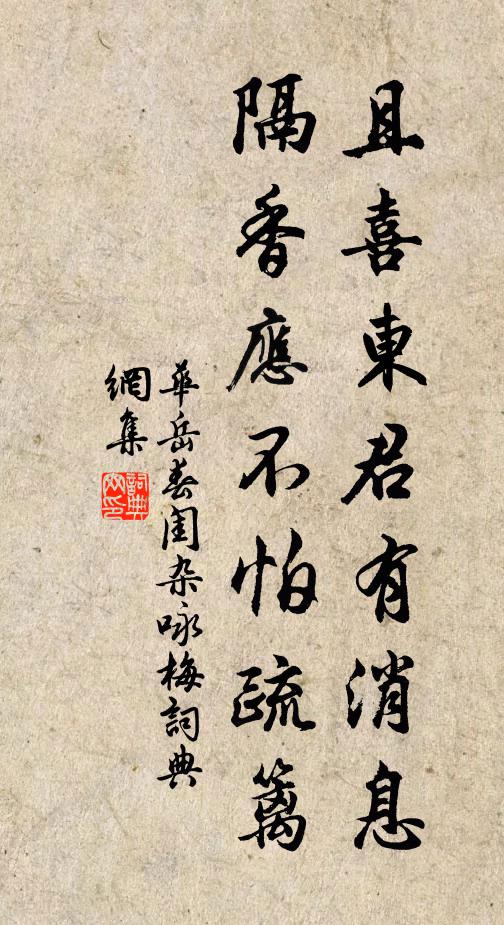 且喜東君有消息
隔香應不怕疏籬
華岳春闺杂咏梅詞典
網集
詞典
网印